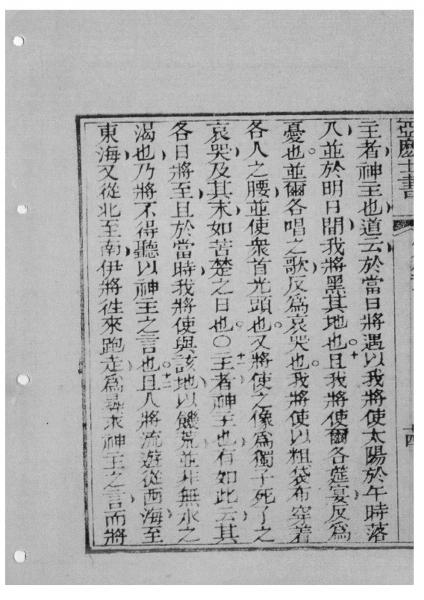 亞麽士書
十四
主者神主也道云於當日將遇以我將使太陽於午時落
入並於明日間我將黑其地也且我將使爾各筵宴反爲
憂也並爾各唱之歌反爲哀哭也我將使以粗袋布穿着
各人之腰並使衆首光頭也又將使之像爲獨子死了之
哀哭及其末如苦楚之日也○十一主者神主也有如此云其
各日將至且於當時我將使與該地以饑荒並非無水之
渴也乃將不得聽以神主之言也十二且人將流遊從西海至
東海又從北至南伊將徃來跑走爲尋求神主之言而將